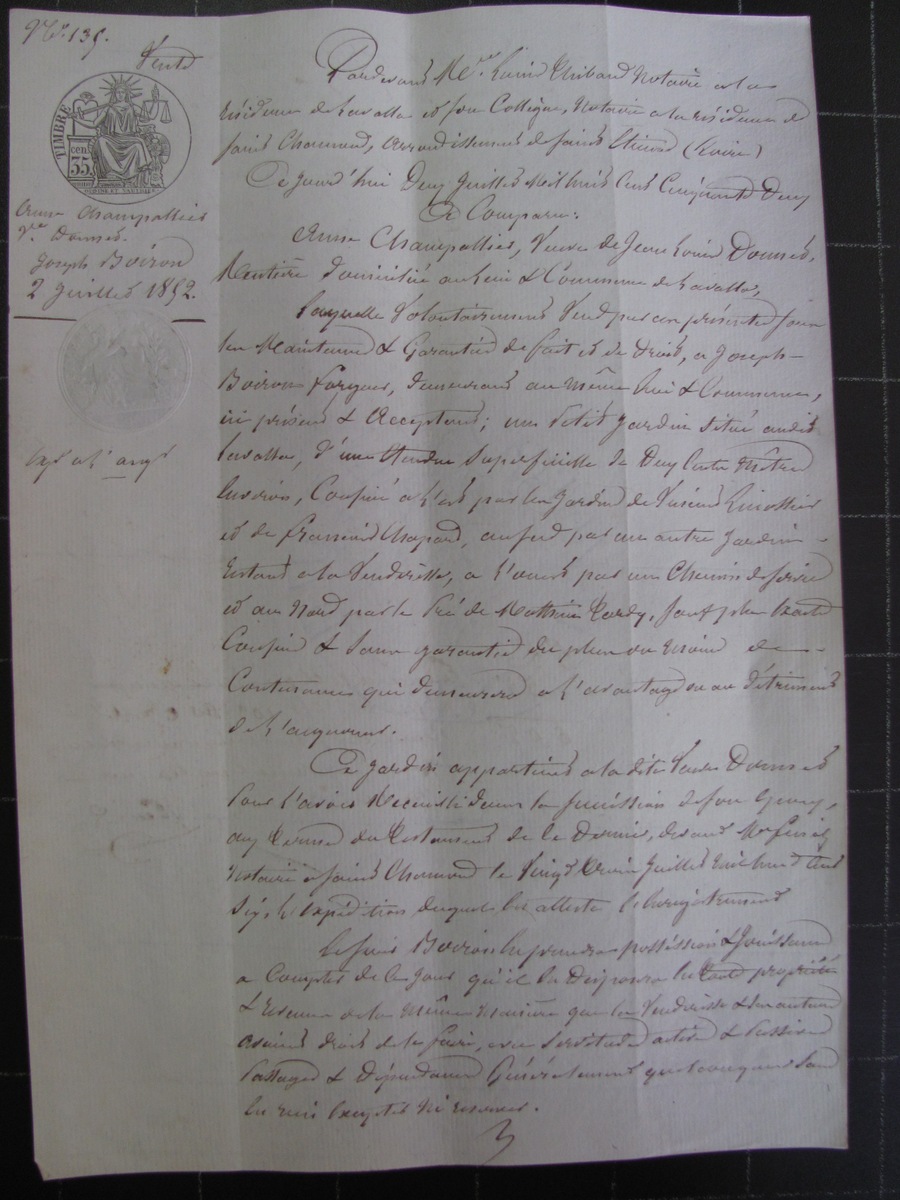 N.° 135.
Vente
TIMBRE
cen 35
Anne Champallier
V.e Dousset
Joseph Boiron
2 Juillet 1852.
Pardevant M.e Louis Thibaud Notaire à la
résidence de Lavalla et son Collègue, Notaire à la résidence de
Saint Chamond, arrondissement de Saint Etienne (Loire)
Ce jourd'hui Deux Juillet Mil huit Cent Cinquante Deux
A Comparu:
Anne Champallier, Veuve de Jean Louis
Rentière domiciliée au lieu & Commune de Lavalla,
Laquelle Volontairement Vend par ces présentes sous
les Maintenue & Garantie de fait et de Droit, à Joseph
Boiron Forgeur, demeurant au même lieu & Commune,
ici présent & Acceptant; un Petit Jardin situé audit
Lavalla, d'une étendue superficielle de Deux Cents Mètres
Environ, Confiné à l'est par les Jardins de
et de François Chapard, au sud par un autre Jardin
Restant à la Venderesse, à l'ouest par un Chemin de
et au Nord par le Pré de Mathieu Tardy, sauf plus exacts
Confins & sans garantie du plus ou moins de
Contenance qui demeurera à l'avantage ou au détriment
de l'acquéreur.
Ce jardin appartient à la dite Veuve
Pour l'avoir Recueilli dans la succession de son
aux termes du Testament de ce Dernier, devant M.e
Notaire à Saint Chamond le Vingt Juillet Mil huit Cent
Six, & expédition duquel
Boiron prendra possession & Jouissance
à Compter de ce Jour qu'il en Disposera en toute propriété
& Revenu de la même manière que la Venderesse & ses auteurs
avaient droit de le faire, avec servitudes actives & Passives
Passages & Dépendances Généralement quelconques sans
en rien Excepter Ni réserver.